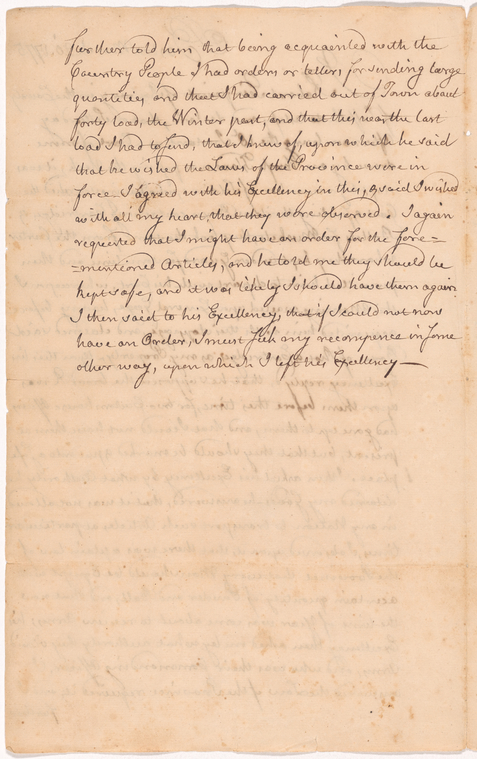 further told him that being acquainted with the
Country People I had orders or letters for sending large
quantities, and that I had carried out of Town about
forty load, the Winter past, and that this was the last
load I had to send, that I knew of, upon which he said
that he wished the Laws of the Province were in
force. I agreed with his Excellency in this, & said I wished
with all my heart, that they were observed. I again
requested that I might have an order for the fore=
=mentioned Articles, and he told me they should be
kept safe, and it was likely I should have them again.
I then said to his Excellency, that if I could not now
have an Order, I must seek my recompence in some
other way, upon which I left his Excellency —